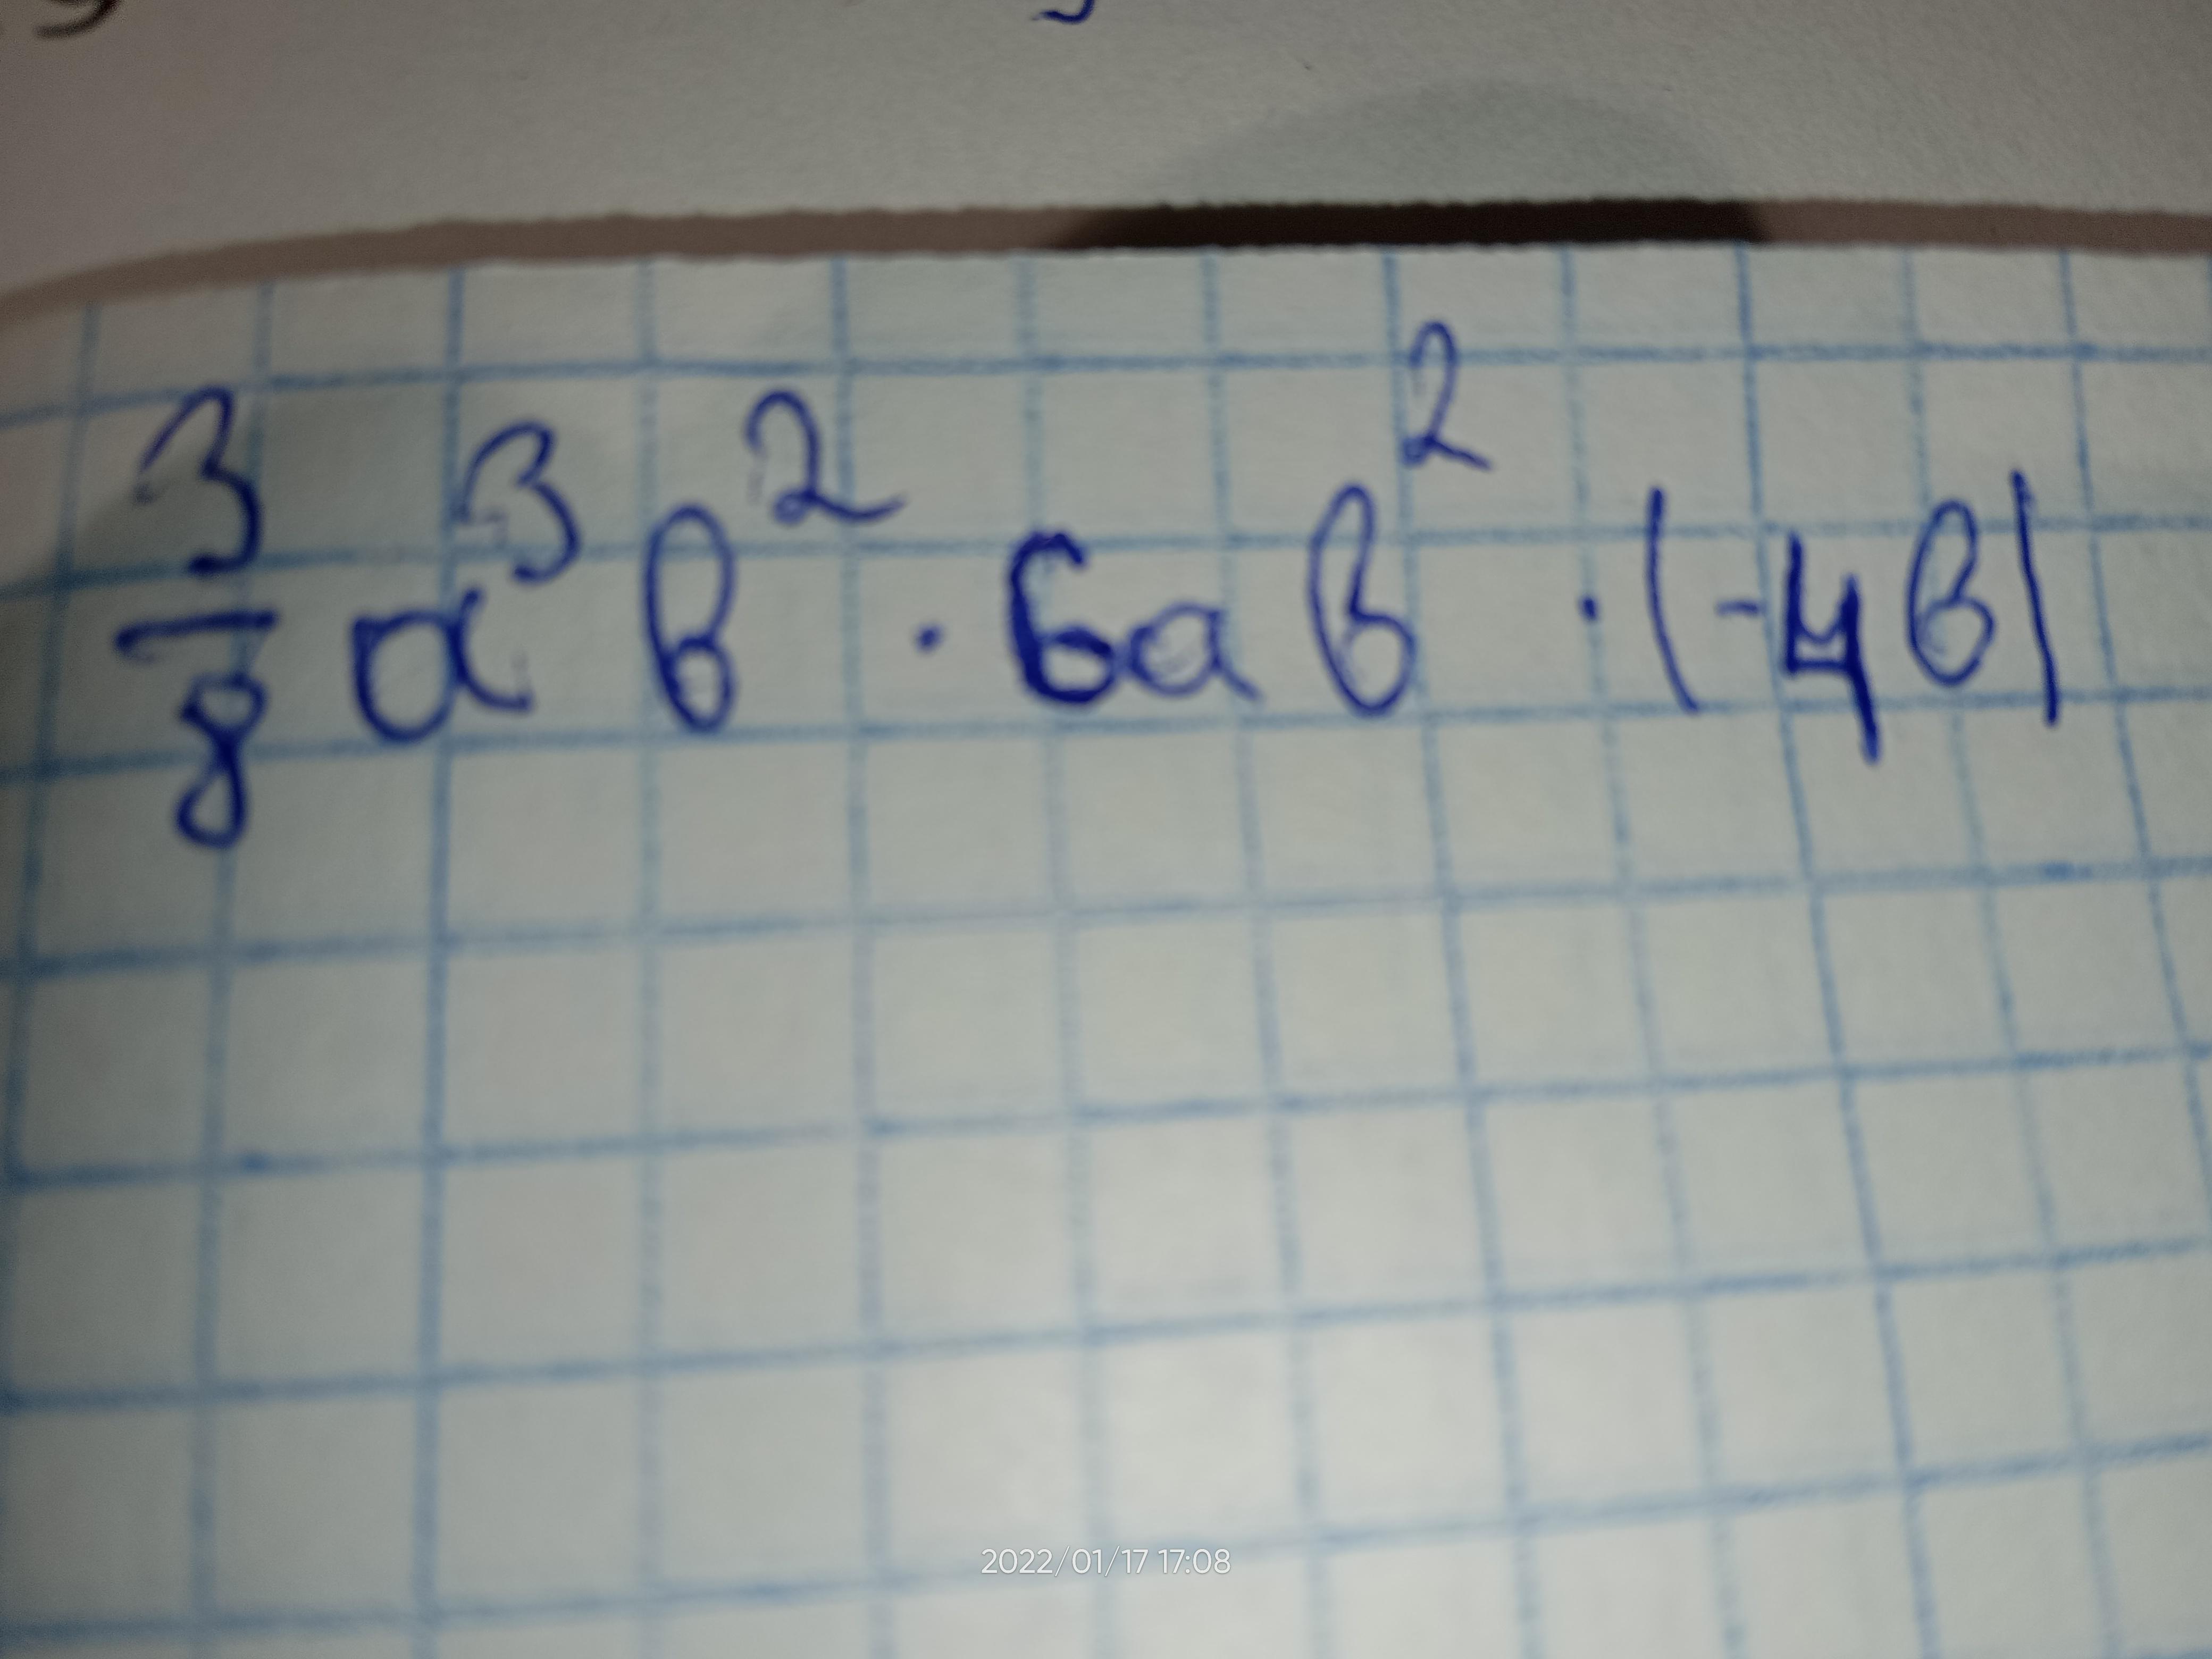 3/8 a³ в² · 6а в² · (-4в)
2022/01/17 17:08